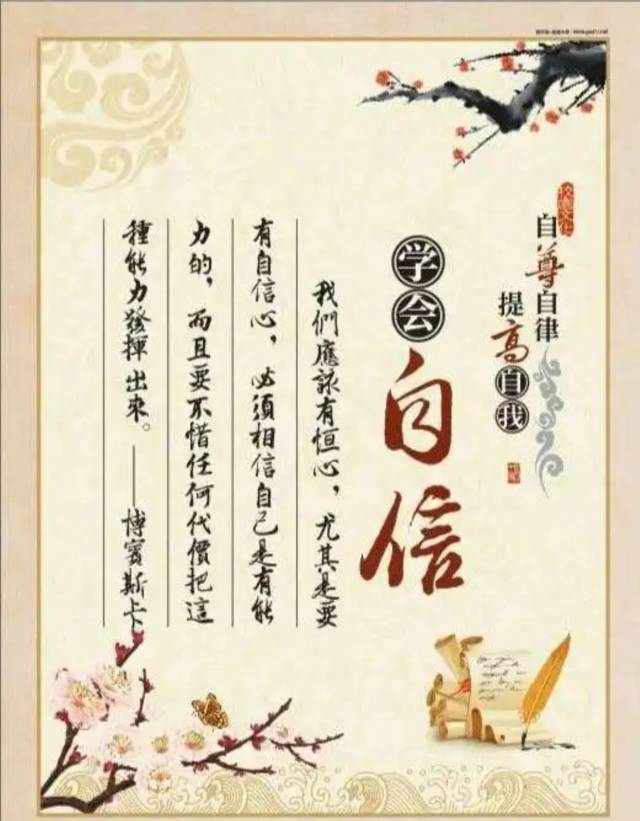 校园文化
自尊自律
提高自我
学会自信
我們應該有恒心，尤其是要
有自信心，必須相信自己是有能
力的，而且要不惜任何代價把這
種能力發揮出來。——博賓斯卡